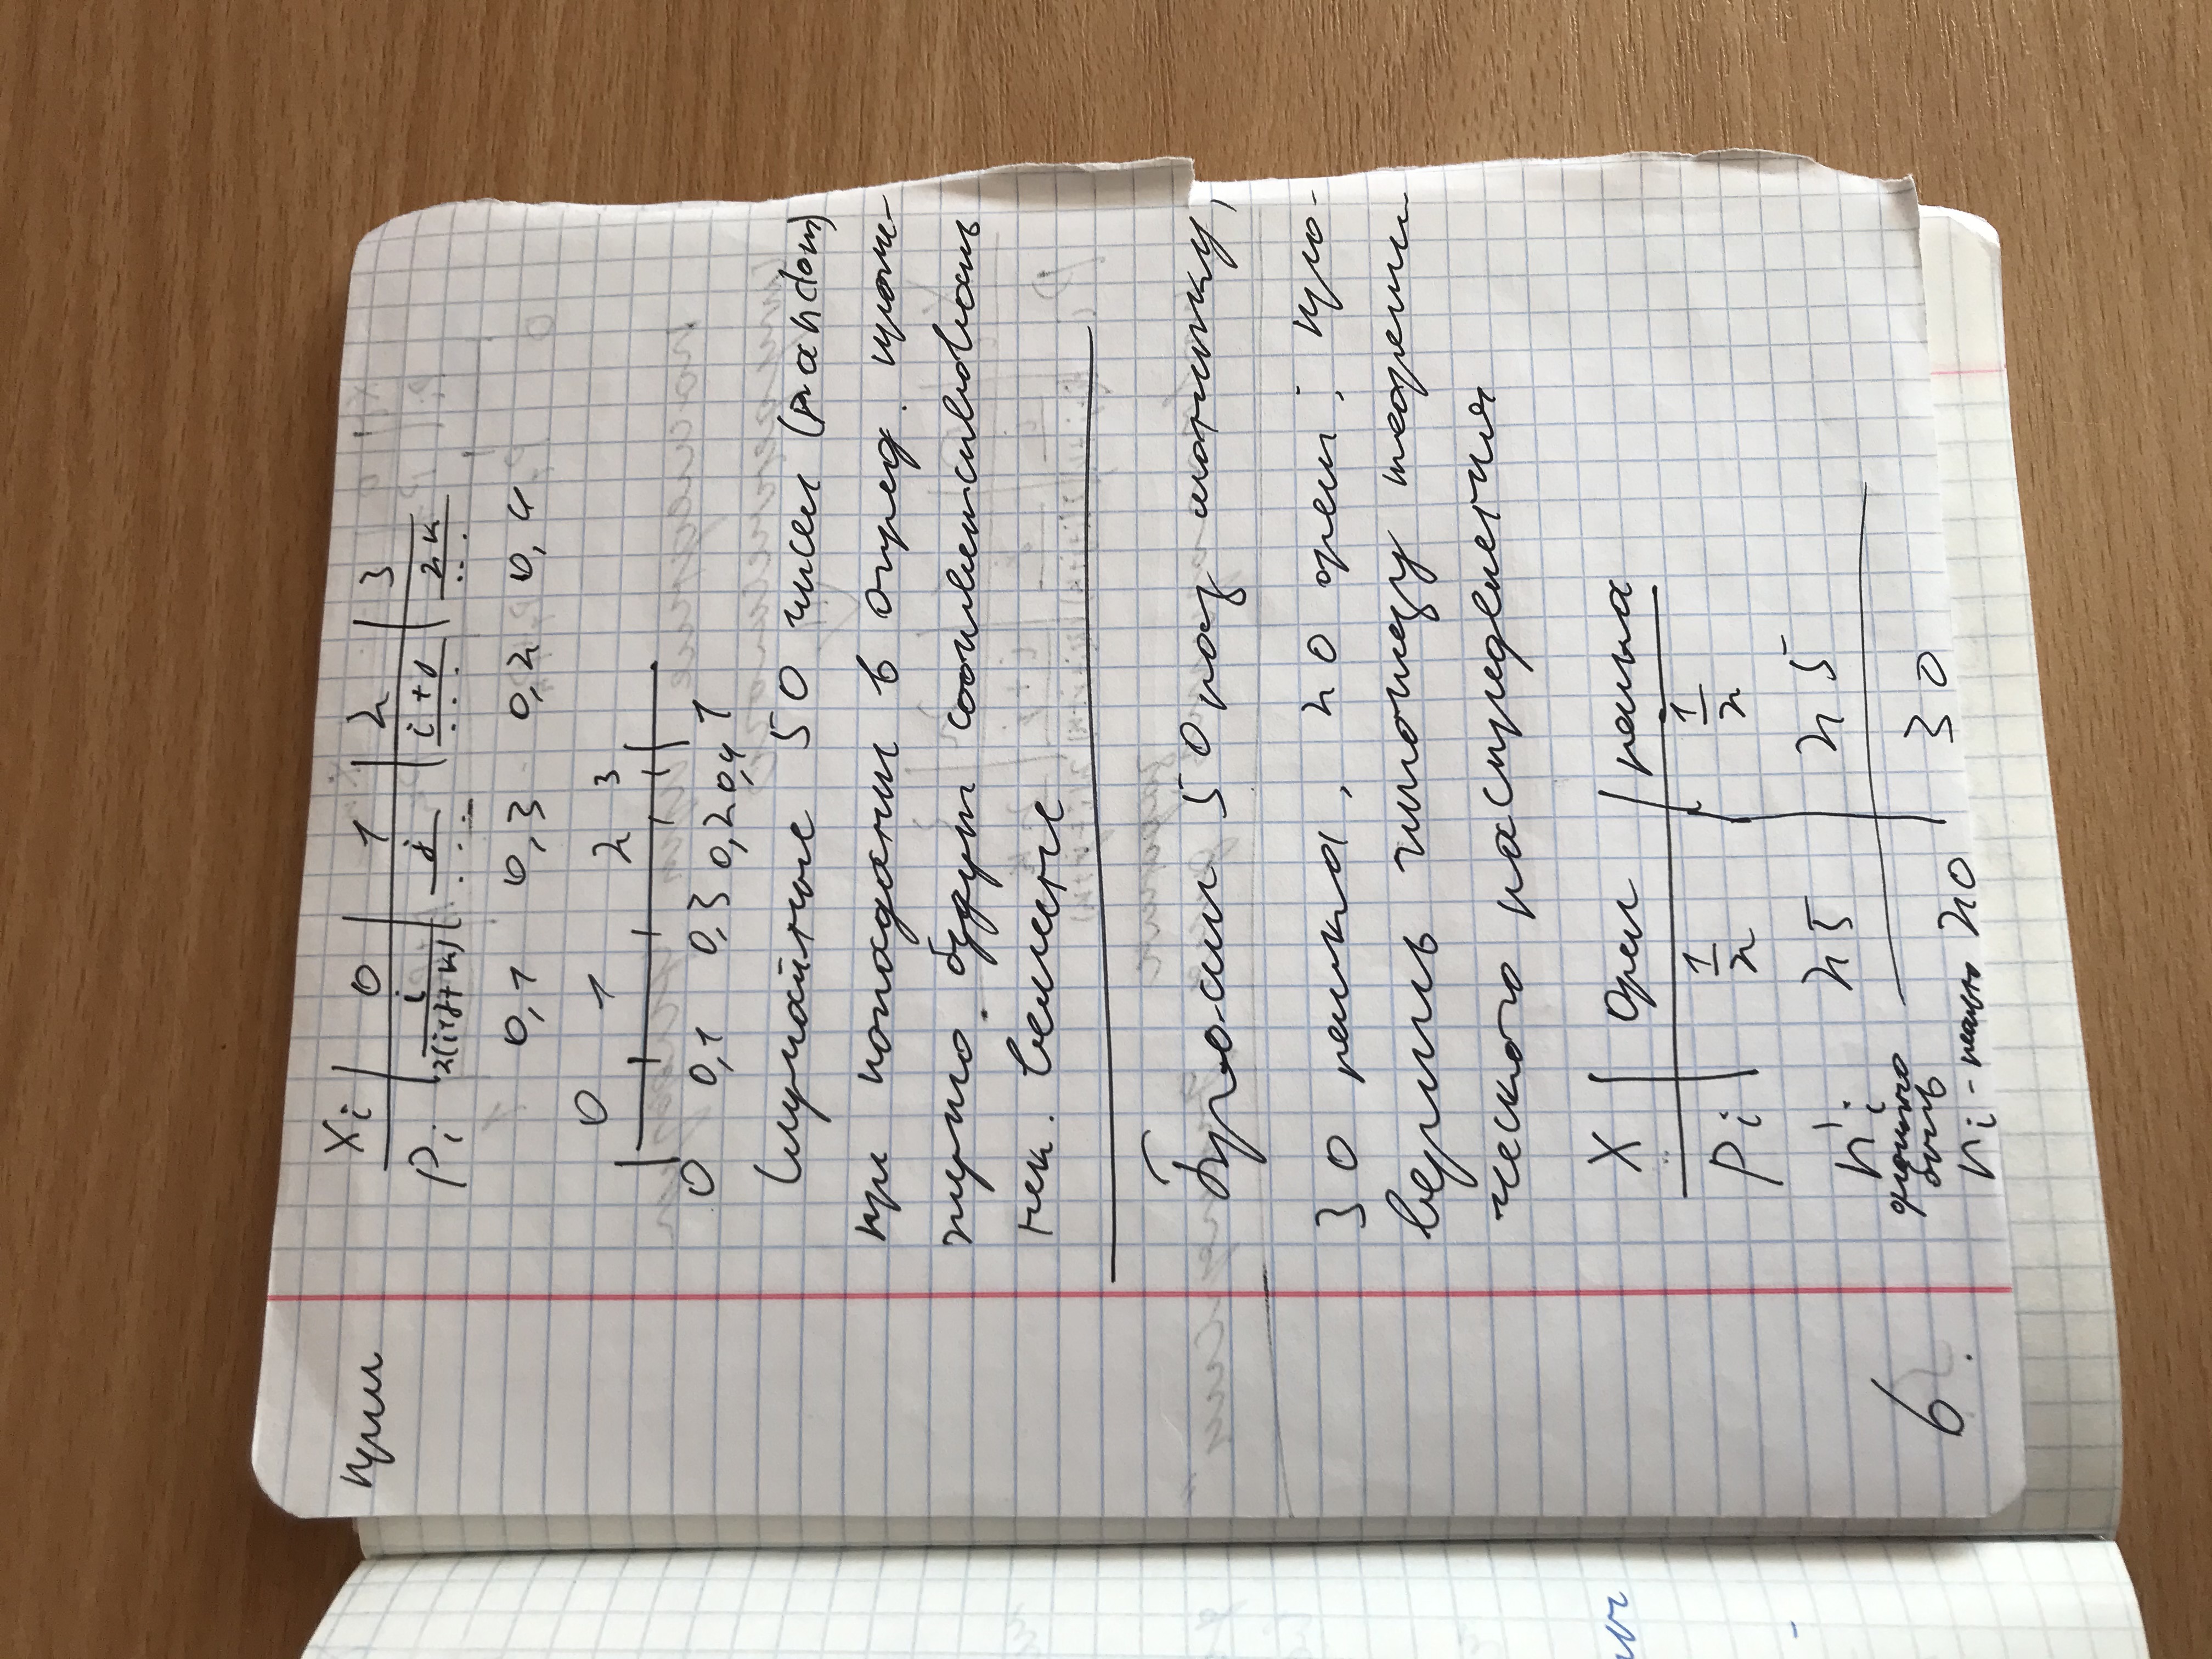 прим
Xi | 0 | 1 | 2 | 3
Pi | i/2(i+j+k) | j/... | i+j/... | 2k/...
0,1 0,3 0,2 0,4
0 1 2 3
0 0,1 0,3 0,2 0,4 1
Случайные 50 чисел (random)
при попадании в опред. проме-
жуток будут соответствовать
нек. величине
Бросил 50 раз монетку,
30 решка, 20 орел; про-
верить гипотезу теорети-
ческого распределения
X | орел | решка
Pi | 1/2 | 1/2
n'i 25 | 25
должно
быть
ni - реально 20 | 30
6.